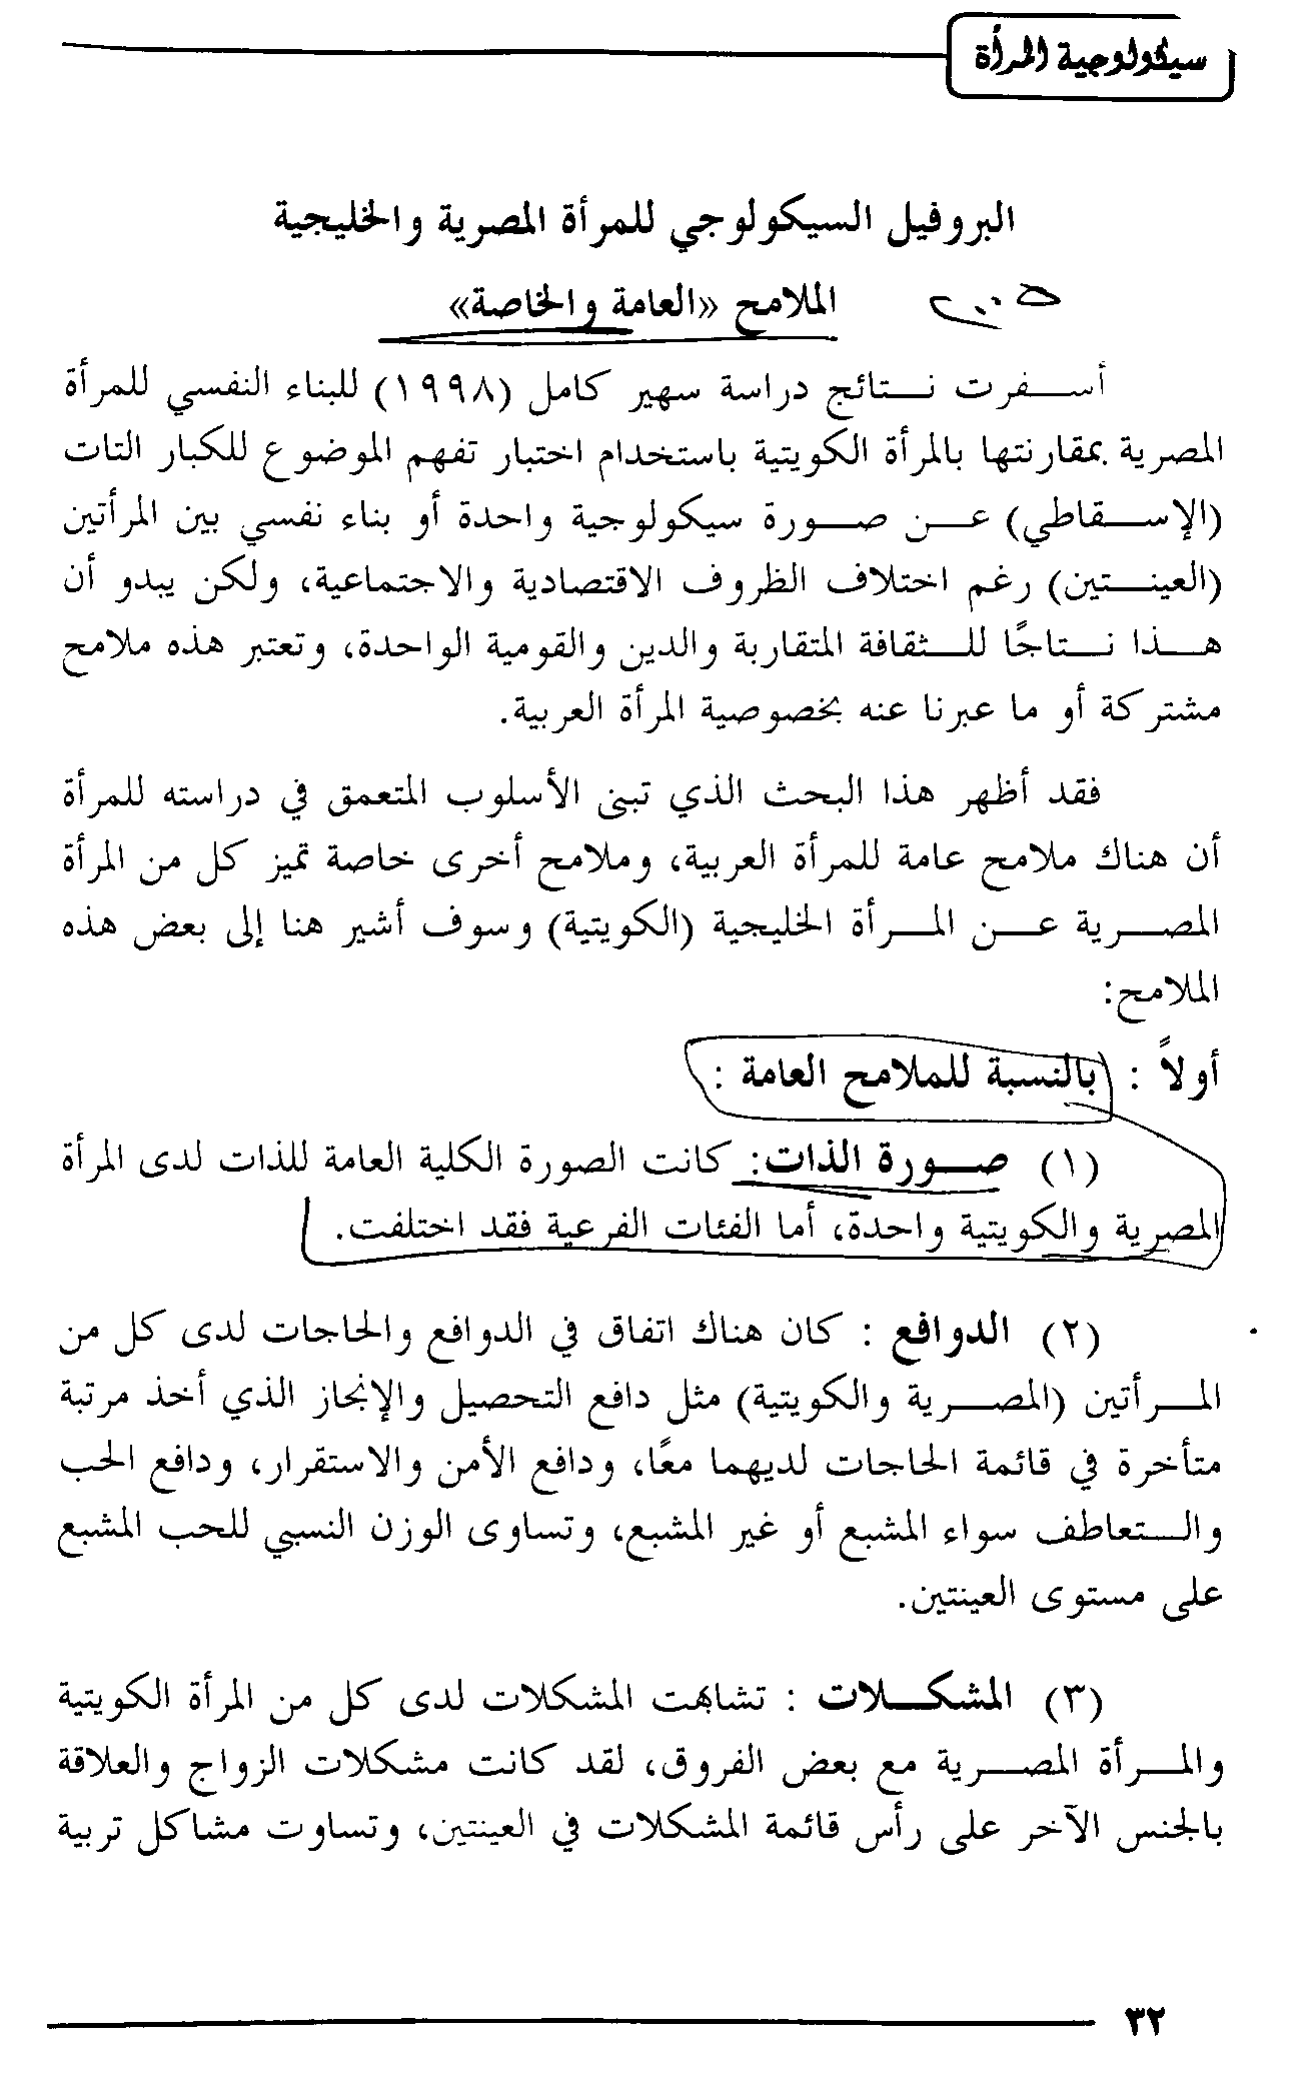 سيكولوجية المرأة
البروفيل السيكولوجي للمرأة المصرية والخليجية
الملامح «العامة والخاصة»
أسفرت نتائج دراسة سهير كامل (١٩٩٨) للبناء النفسي للمرأة
المصرية بمقارنتها بالمرأة الكويتية باستخدام اختبار تفهم الموضوع للكبار التات
(الإسقاطي) عن صورة سيكولوجية واحدة أو بناء نفسي بين المرأتين
(العينتين) رغم اختلاف الظروف الاقتصادية والاجتماعية، ولكن يبدو أن
هذا نتاجًا للثقافة المتقاربة والدين والقومية الواحدة، وتعتبر هذه ملامح
مشتركة أو ما عبرنا عنه بخصوصية المرأة العربية.
فقد أظهر هذا البحث الذي تبنى الأسلوب المتعمق في دراسته للمرأة
أن هناك ملامح عامة للمرأة العربية، وملامح أخرى خاصة تميز كل من المرأة
المصرية عن المرأة الخليجية (الكويتية) وسوف أشير هنا إلى بعض هذه
الملامح:
أولاً : بالنسبة للملامح العامة :
(١) صورة الذات: كانت الصورة الكلية العامة للذات لدى المرأة
المصرية والكويتية واحدة، أما الفئات الفرعية فقد اختلفت.
(٢) الدوافع : كان هناك اتفاق في الدوافع والحاجات لدى كل من
المرأتين (المصرية والكويتية) مثل دافع التحصيل والإنجاز الذي أخذ مرتبة
متأخرة في قائمة الحاجات لديهما معًا، ودافع الأمن والاستقرار، ودافع الحب
والتعاطف سواء المشبع أو غير المشبع، وتساوى الوزن النسبي للحب المشبع
على مستوى العينتين.
(٣) المشكلات : تشابهت المشكلات لدى كل من المرأة الكويتية
والمرأة المصرية مع بعض الفروق، لقد كانت مشكلات الزواج والعلاقة
بالجنس الآخر على رأس قائمة المشكلات في العينتين، وتساوت مشاكل تربية
٣٢